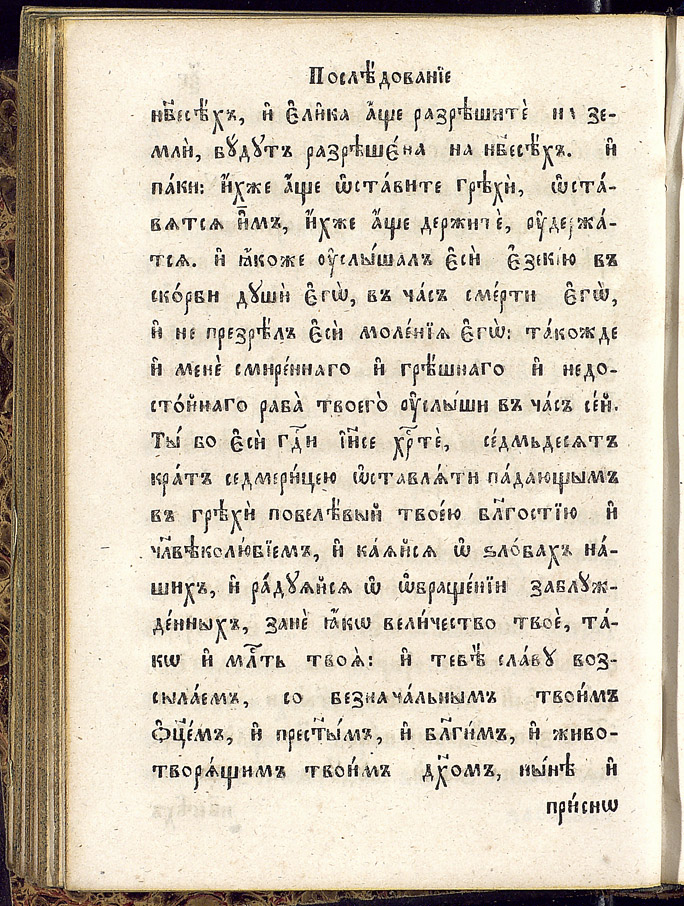 Послѣ́дованїе
нб҃сѣ́хъ, и҆ є҆ли̑ка а҆́ще разрѣшитѐ на зе-
млѝ, бꙋ́дꙋтъ разрѣшє́на на нб҃сѣ́хъ. и҆
па́ки: и҆́хже а҆́ще ѡ҆ста́вите грѣхѝ, ѡ҆ста́-
вятся и҆̀мъ, и҆́хже а҆́ще держитѐ, ᲂу҆держа́-
тся. и҆ ꙗ҆́коже ᲂу҆слы́шалъ є҆сѝ є҆зекі́ю въ
ско́рби дꙋшѝ є҆гѡ̀, въ ча́съ сме́рти є҆гѡ̀,
и҆ не презрѣ́лъ є҆сѝ моле́нїѧ є҆гѡ̀: та́кожде
и҆ менѐ смире́ннаго и҆ грѣ́шнаго и҆ недо-
сто́йнаго раба̀ твоего̀ ᲂу҆слы́ши въ ча́съ се́й.
Ты́ бо є҆сѝ гдⷭ҇и і҆и҃се хрⷭ҇тѐ, се́дмьдесѧтъ
кра́тъ седмери́цею ѡ҆ставлѧ́ти па́дающымъ
въ грѣхѝ повелѣ́вый твое́ю бл҃гостїю и҆
чл҃вѣколю́бїемъ, и҆ ка́ѧйсѧ ѡ҆ ѕло́бахъ на́-
шихъ, и҆ ра́дꙋѧйсѧ ѡ҆ ѡ҆браще́нїи заблꙋж-
де́нныхъ, занѐ ꙗ҆́кѡ вели́чество твоѐ, та́-
кѡ и҆ млⷭ҇ть твоѧ̀: и҆ тебѣ̀ сла́вꙋ воз-
сыла́емъ, со безнача́льнымъ твои́мъ
ѻ҆ц҃е́мъ, и҆ прест҃ы́мъ, и҆ бл҃ги́мъ, и҆ живо-
творѧ́щимъ твои́мъ дх҃омъ, ны́нѣ и҆
при́снѡ